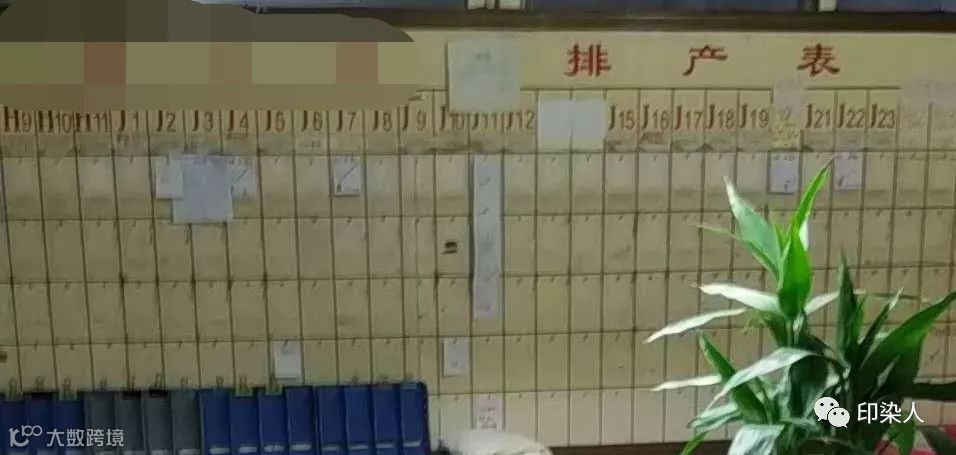 排产表
H9 H10 H11 J1 J2 J3 J4 J5 J6 J7 J8 J9 J10 J11 J12 J15 J16 J17 J18 J19 J21 J22 J23
大数跨境
印染人